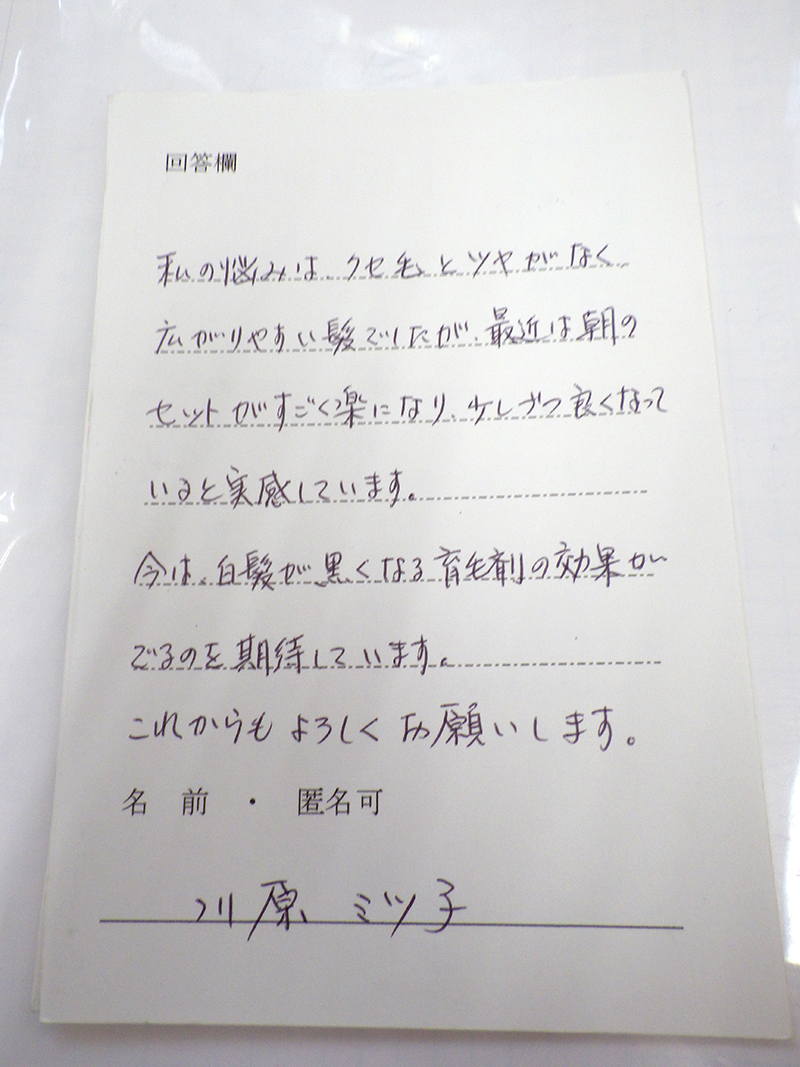 回答欄
私の悩みは、クセ毛とツヤがなく
広がりやすい髪でしたが、最近は朝の
セットがすごく楽になり、少しづつ良くなって
いると実感しています。
今は、白髪が黒くなる育毛剤の効果が
でるのを期待しています。
これからもよろしくお願いします。
名 前 ・ 匿名可
川原 ミツ子